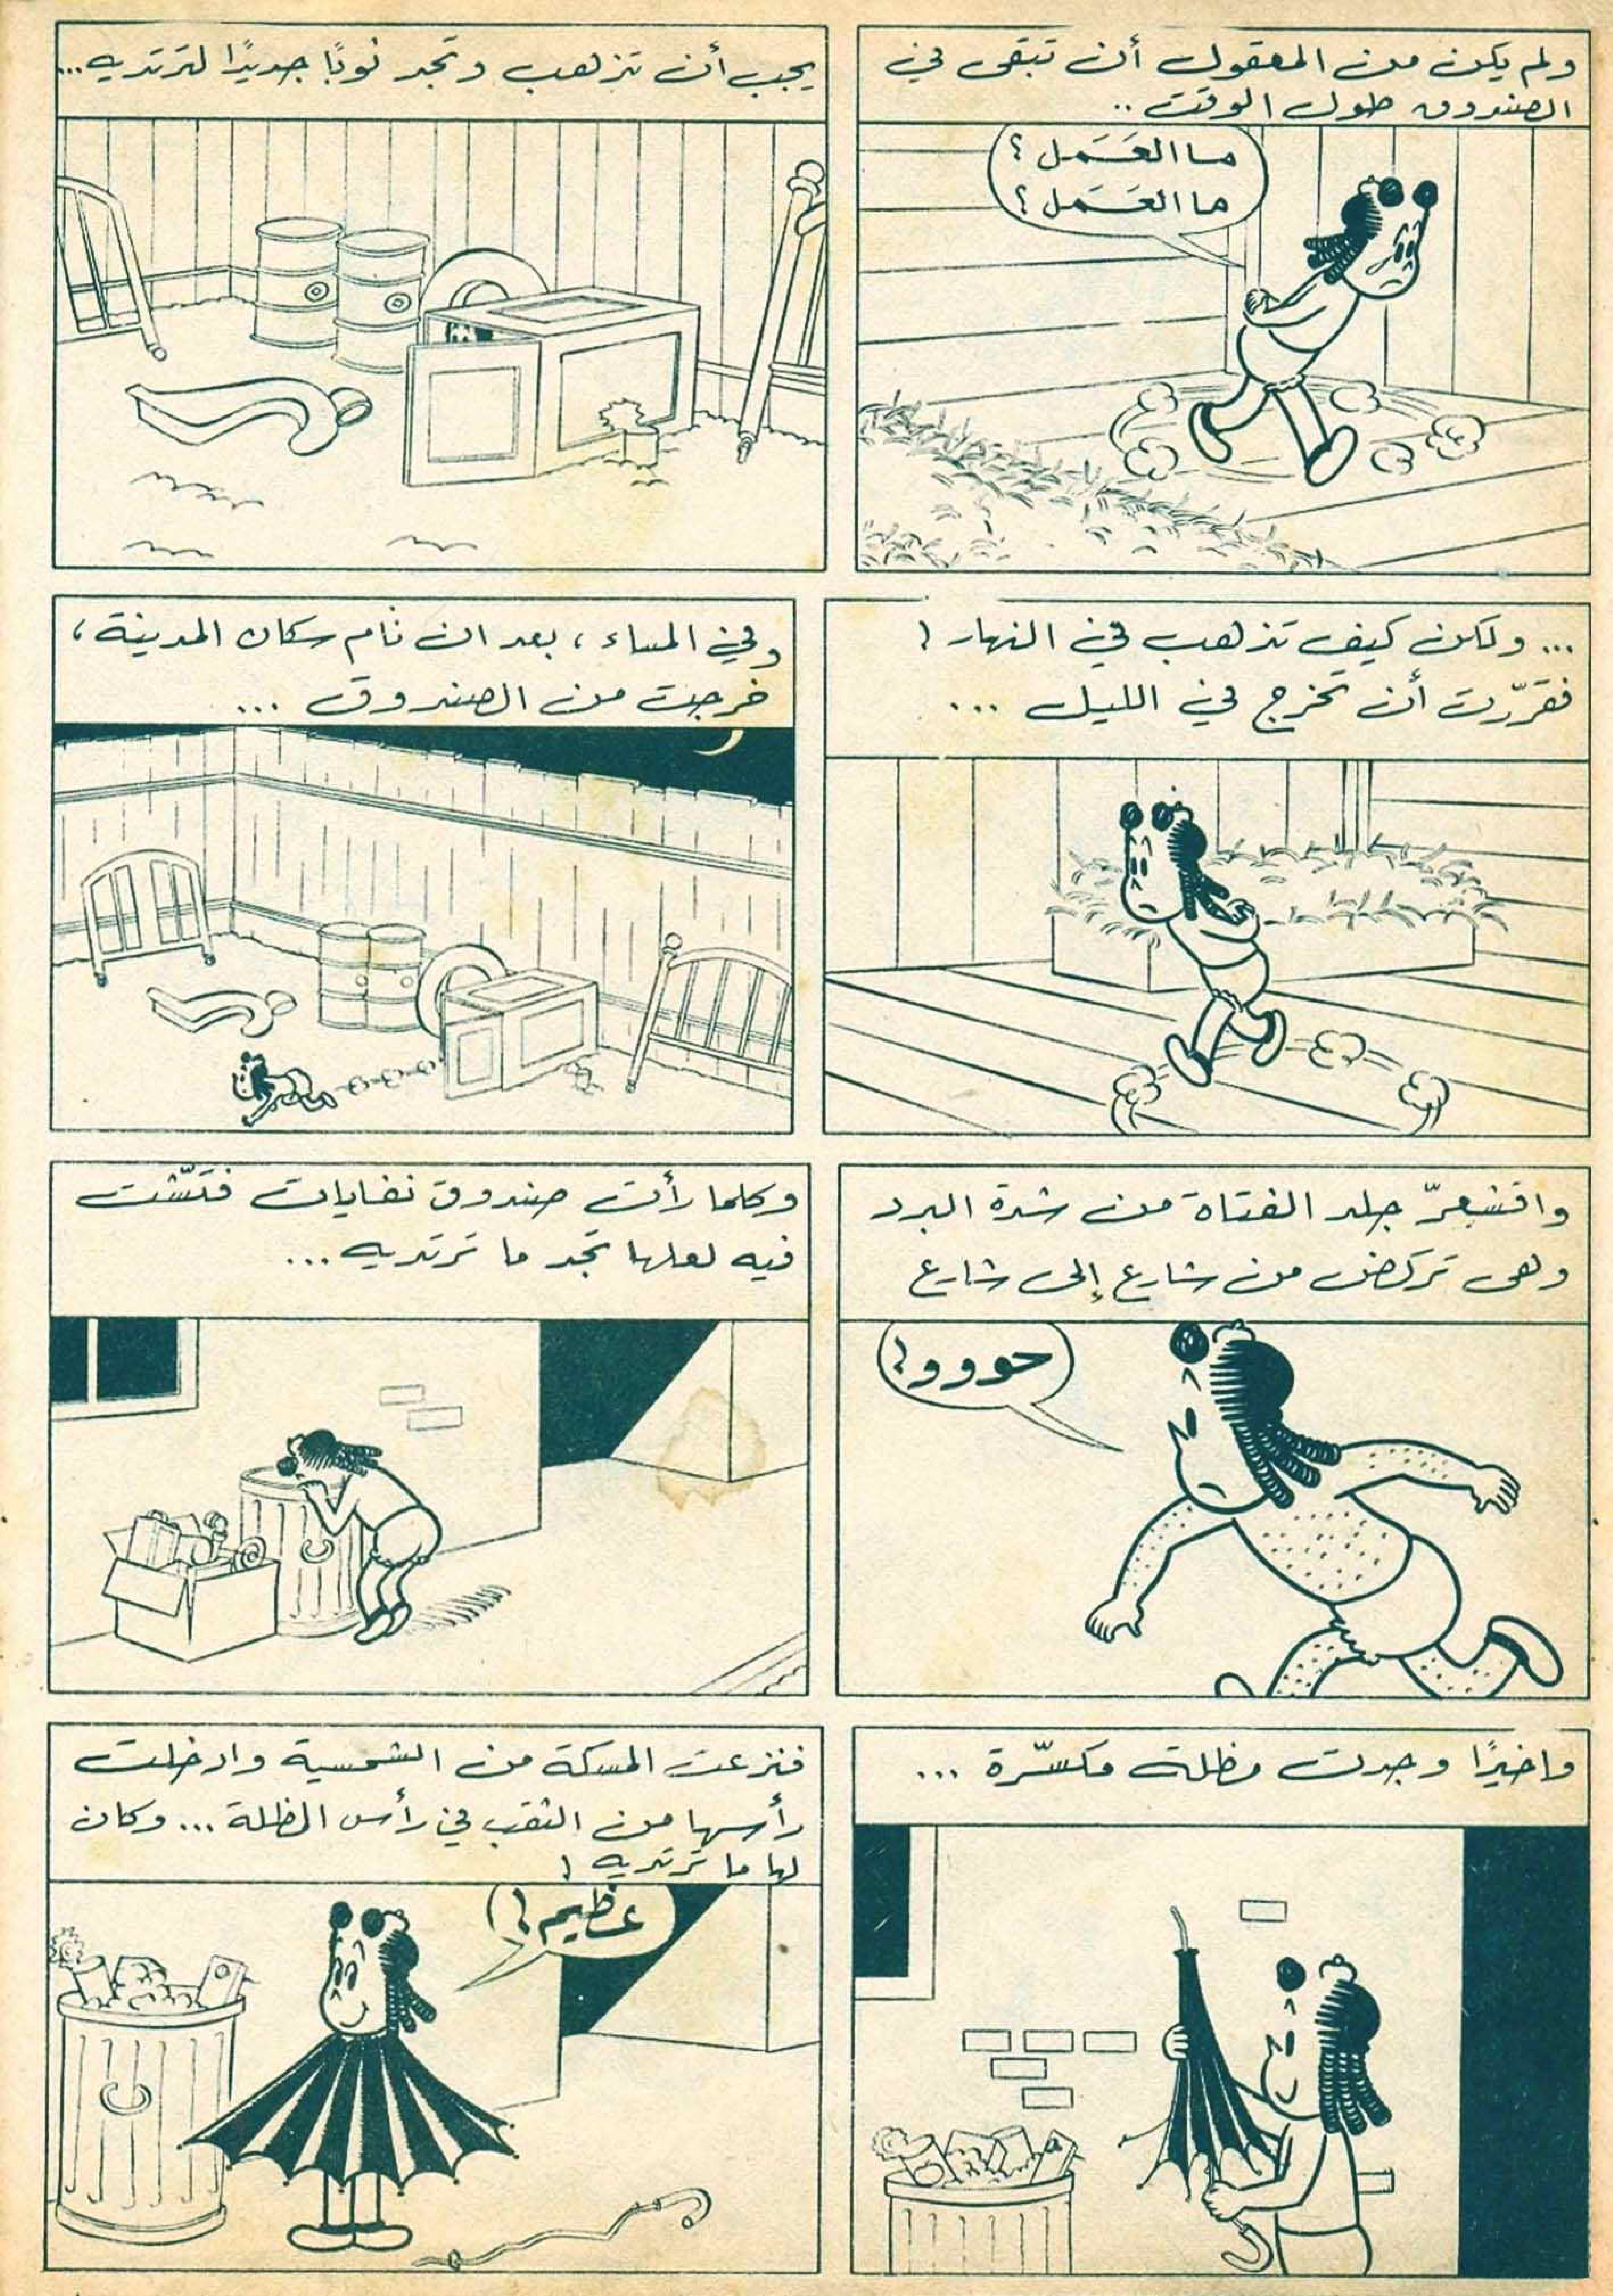 ولم يكن من المعقول أن تبقى في
الصندوق طول الوقت ..
ما العَمَل ؟
ما العَمَل ؟
يجب أن تذهب وتجد ثوبًا جديدًا لترتديه...
... ولكن كيف تذهب في النهار !
فقرّرت أن تخرج في الليل ...
وفي المساء ، بعد ان نام سكان المدينة ،
خرجت من الصندوق ...
واقشعرّ جلد الفتاة من شدة البرد
وهى تركض من شارع إلى شارع
حووو !
وكلما رأت صندوق نفايات فتّشت
فيه لعلها تجد ما ترتديه ...
واخيرًا وجدت مظلة مكسّرة ...
فنزعت المسكة من الشمسية وادخلت
رأسها من الثقب في رأس المظلة ... وكان
لها ما ترتديه !
عظيم !